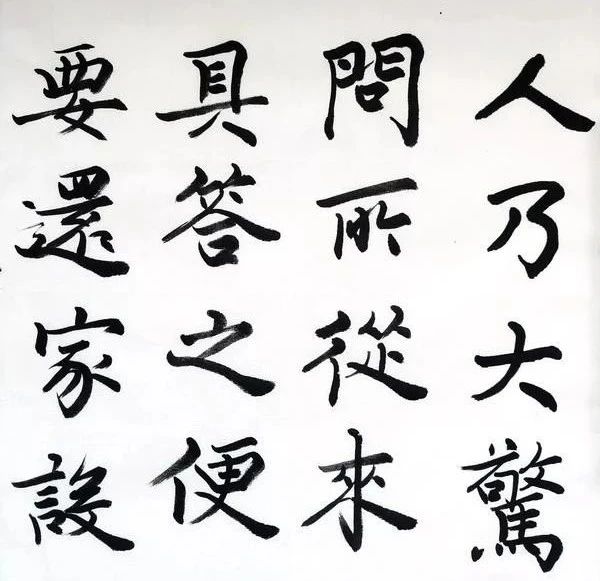 人乃大驚
問所從來
具答之便
要還家設